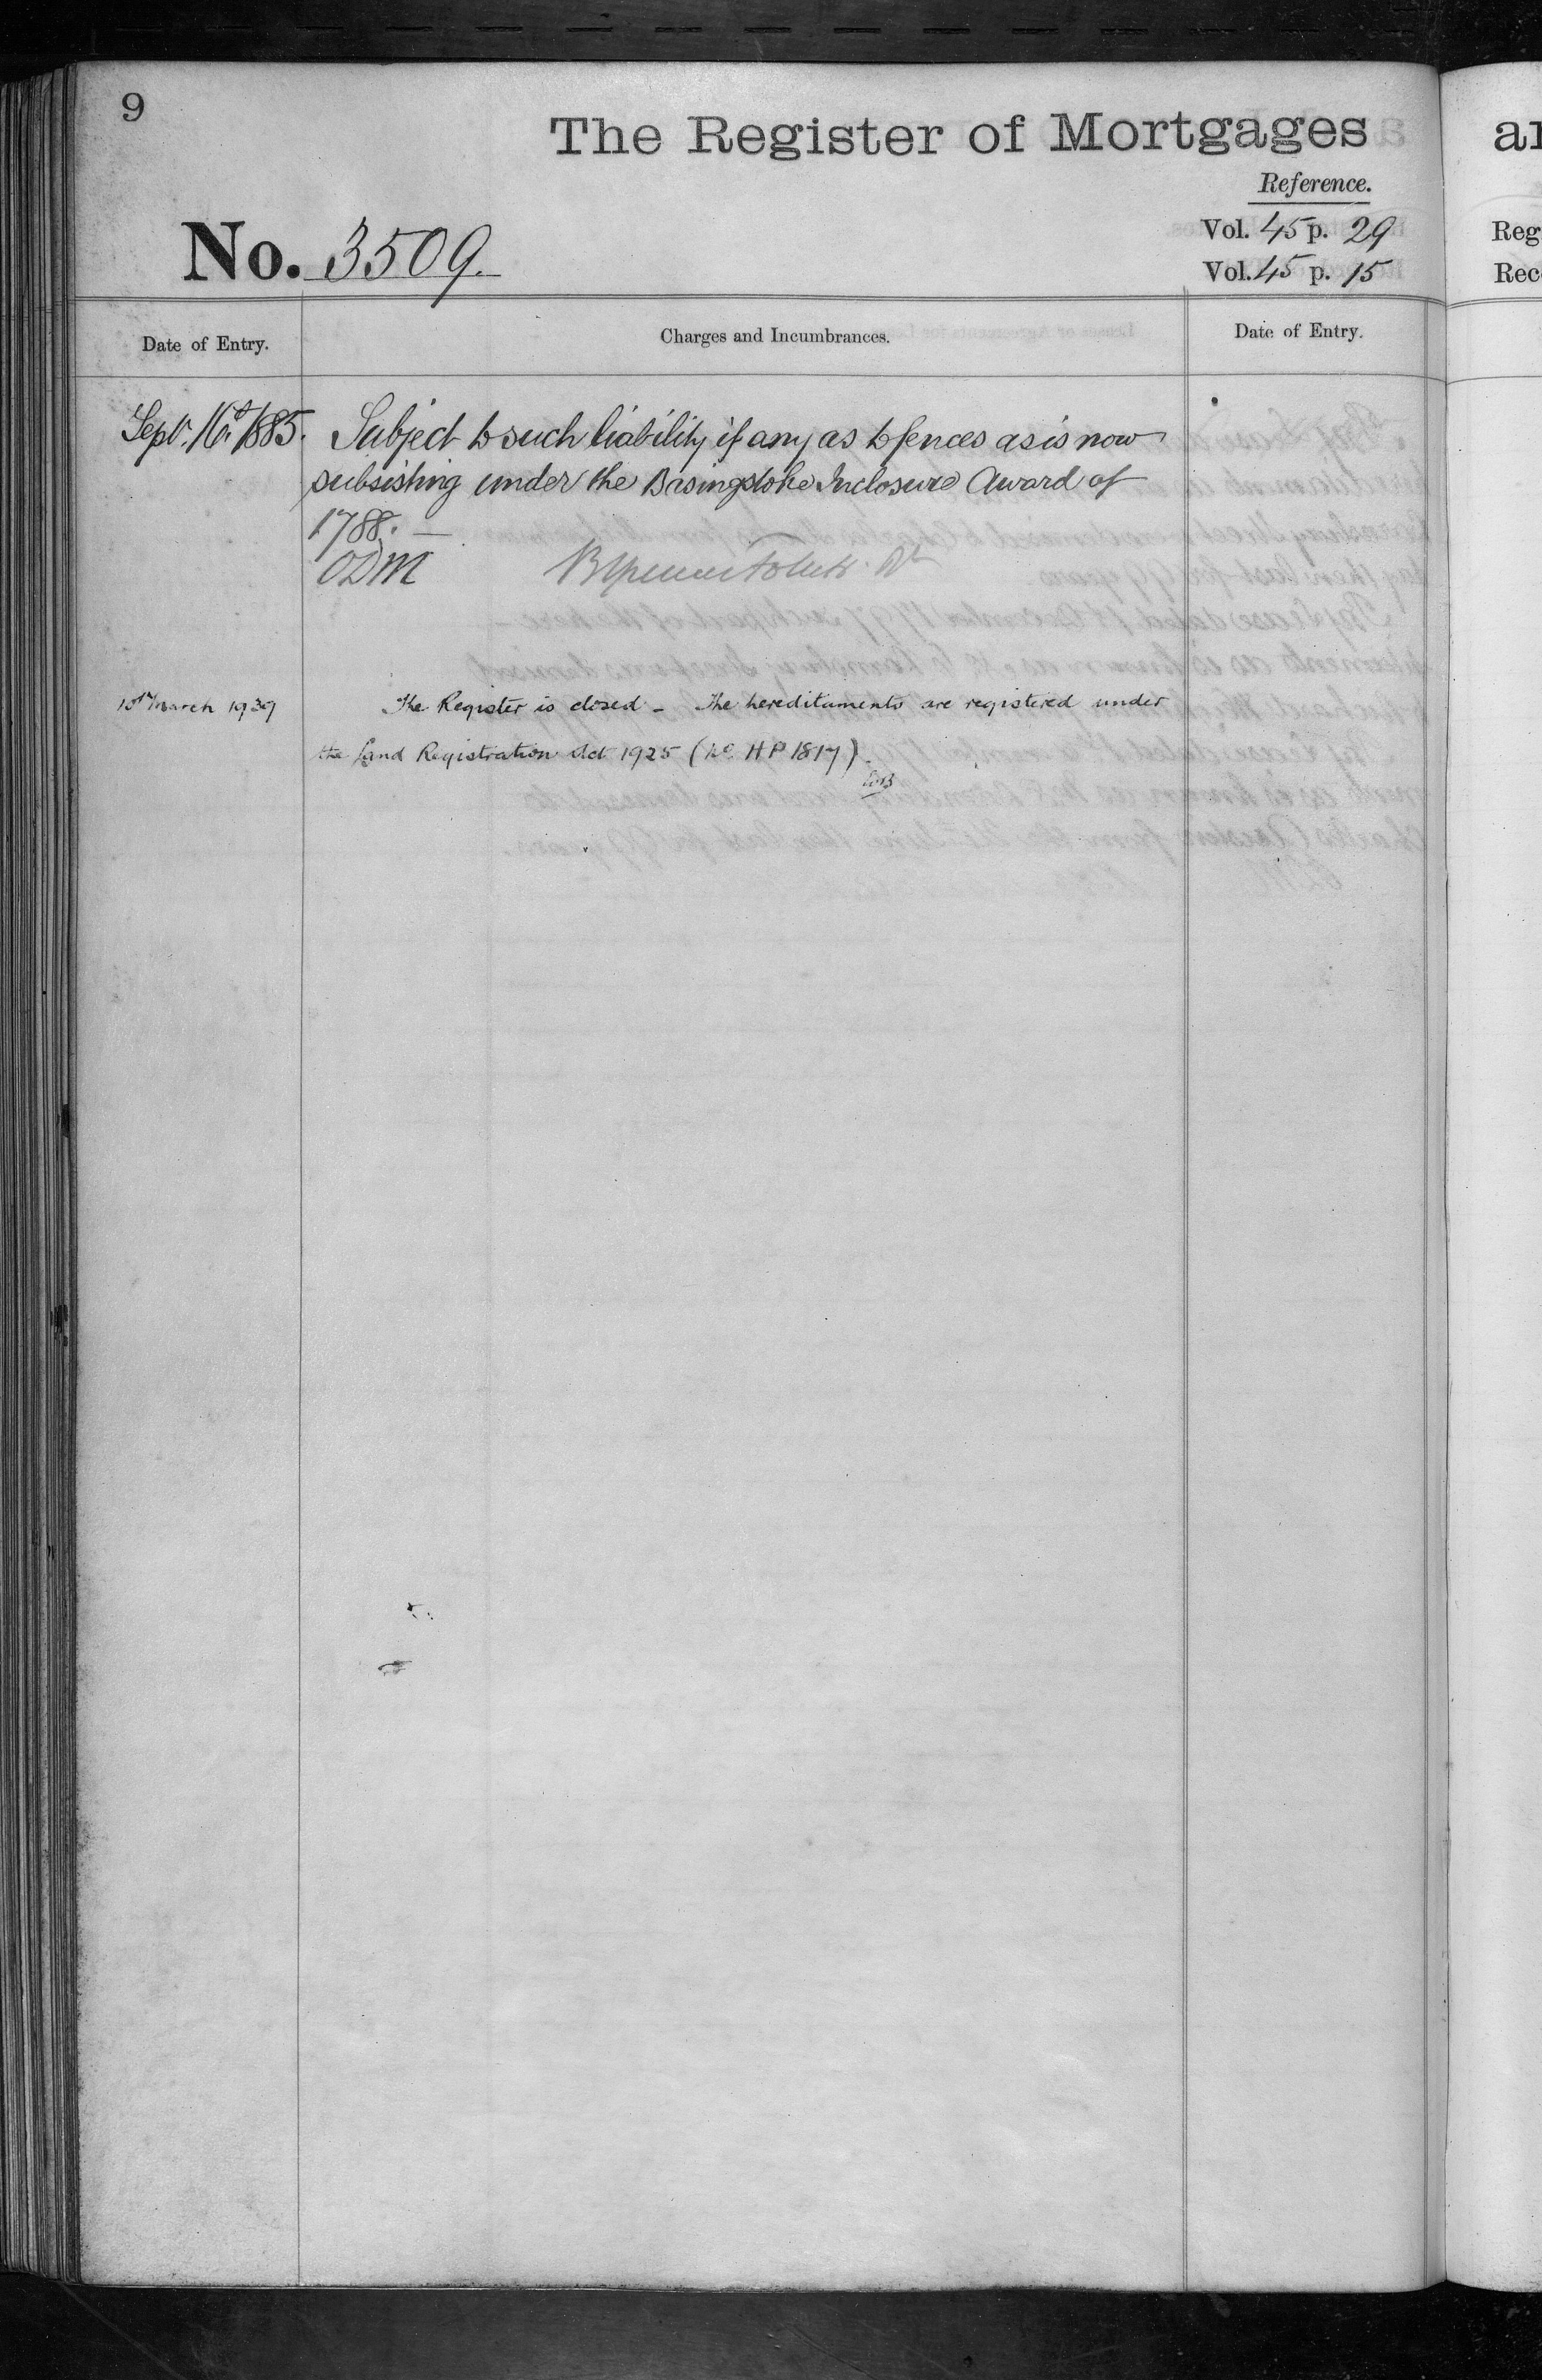 9
The Register of Mortgages
Reference.
No. 3509.
Vol. 45 p. 29
Vol. 45 p. 15
Date of Entry.
Charges and Incumbrances.
Date of Entry.
Sept. 16th 1885. Subject to such liability if any as to fences as is now
subsisting under the Basingstoke Inclosure Award of
1788. —
ODM
March 1939 The Register is closed - The hereditaments are registered under
the Land Registration Act 1925 (No. HP 1817)
Reg
Rec